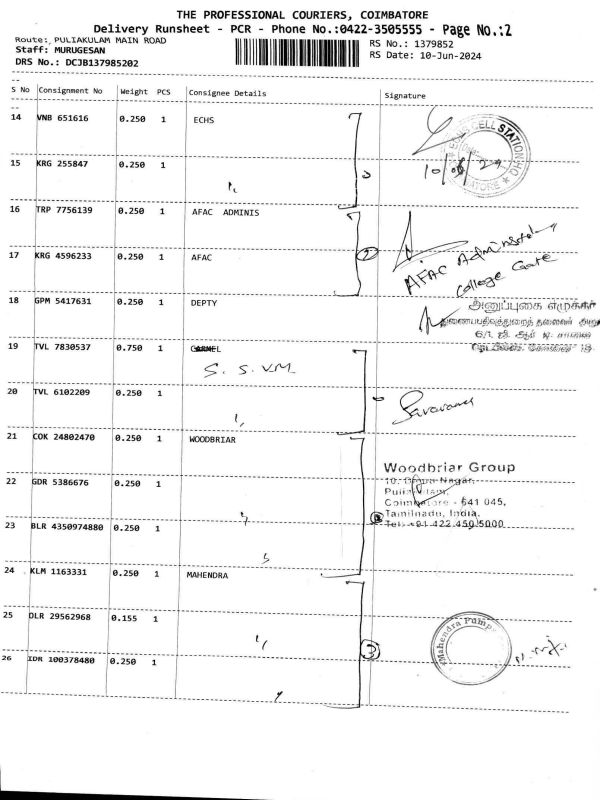 THE PROFESSIONAL COURIERS, COIMBATORE
Delivery Runsheet - PCR - Phone No.:0422-3505555 - Page No.:2
Route: PULIAKULAM MAIN ROAD
Staff: MURUGESAN
DRS No.: DCJB137985202
RS No.: 1379852
RS Date: 10-Jun-2024
S No Consignment No Weight PCS Consignee Details Signature
14 VNB 651616 0.250 1 ECHS
15 KRG 255847 0.250 1
16 TRP 7756139 0.250 1 AFAC ADMINIS
17 KRG 4596233 0.250 1 AFAC
AFAC
College Gate
18 GPM 5417631 0.250 1 DEPTY
அனுப்புகை எழுத்தர்
19 TVL 7830537 0.750 1
S. S. V.M.
20 TVL 6102209 0.250 1
21 COK 24802470 0.250 1 WOODBRIAR
Woodbriar Group
22 GDR 5386676 0.250 1
Coimbatore - 641 045,
Tamilnadu, India.
Tel: +91 422 450 5000
23 BLR 4350974880 0.250 1
24 KLM 1163331 0.250 1 MAHENDRA
25 DLR 29562968 0.155 1
3
Mahendra Pumps
26 IDR 100378480 0.250 1